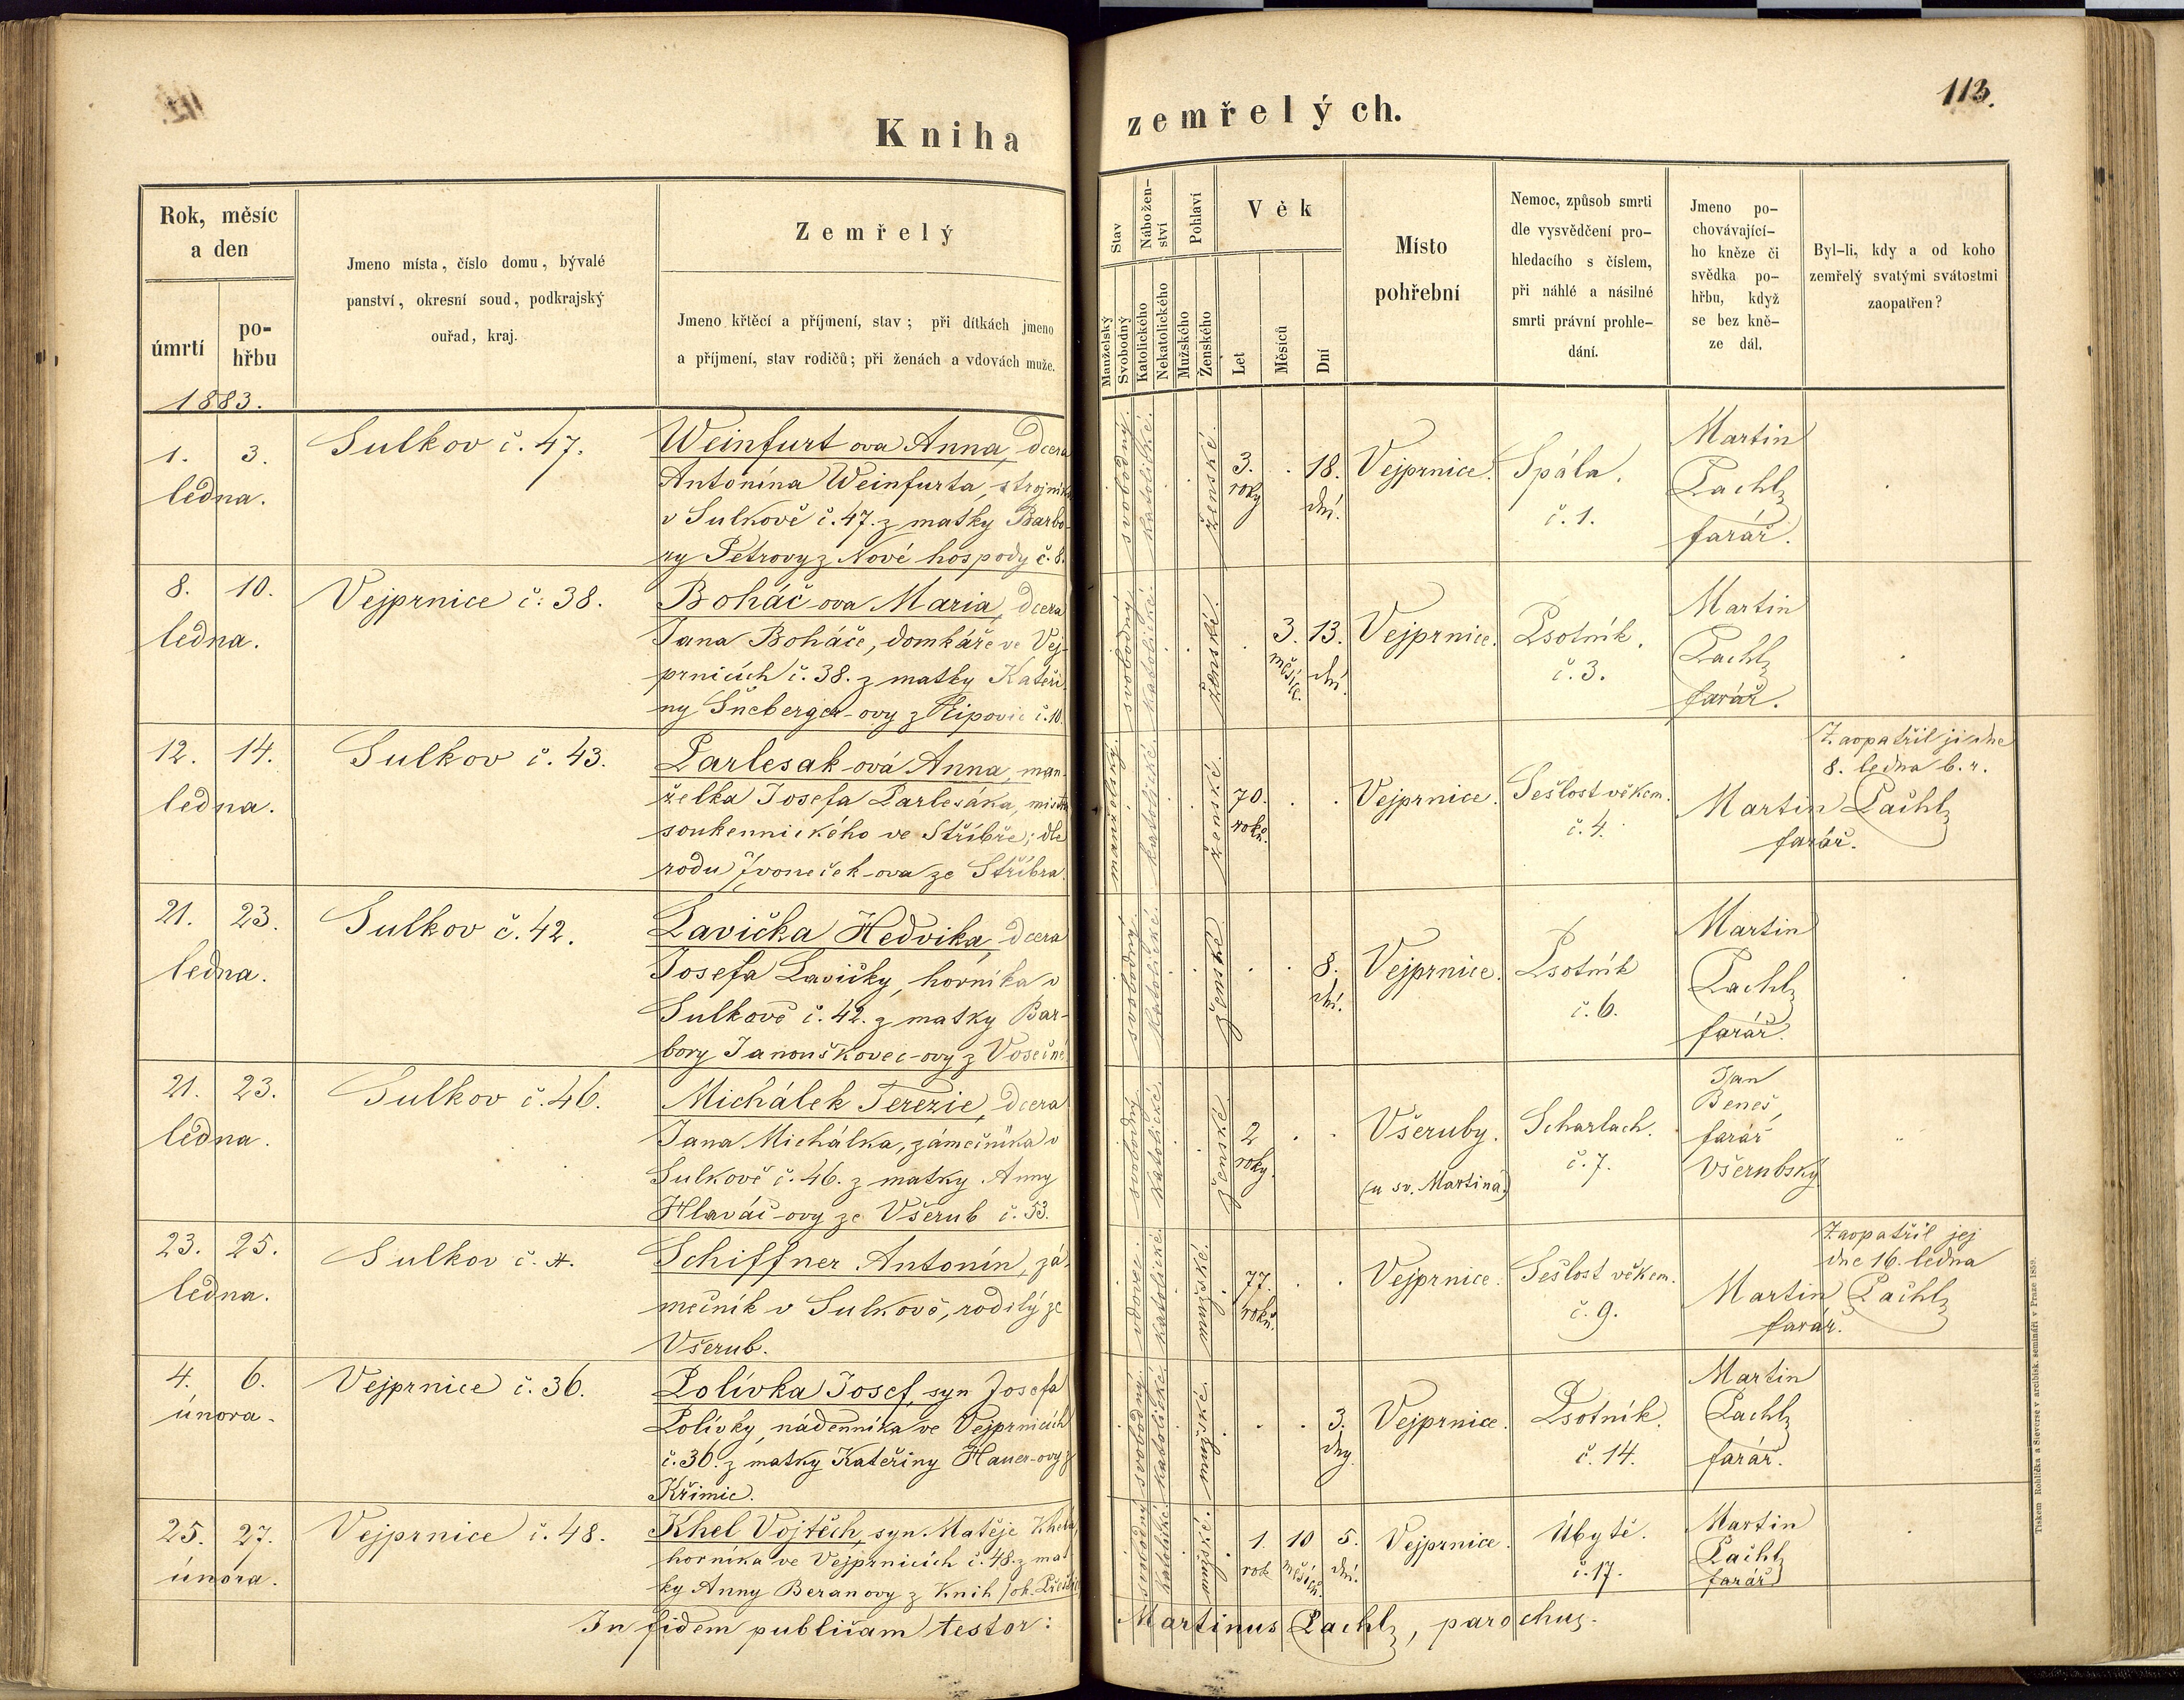 113.
Kniha zemřelých.
Rok, měsíc
a den
úmrtí
po-
hřbu
1883.
Jmeno místa, číslo domu, bývalé
panství, okresní soud, podkrajský
ouřad, kraj.
Zemřelý
Jmeno křtěcí a příjmení, stav; při dítkách jmeno
a příjmení, stav rodičů; při ženách a vdovách muže.
Stav
Manželský
Svobodný
Nábožen-
ství
Katolického
Nekatolického
Pohlaví
Mužského
Ženského
Věk
Let
Měsíců
Dní
Místo
pohřební
Nemoc, způsob smrti
dle vysvědčení pro-
hledacího s číslem,
při náhlé a násilné
smrti právní prohle-
dání.
Jmeno po-
chovávající-
ho kněze či
svědka po-
hřbu, když
se bez kně-
ze dál.
Byl-li, kdy a od koho
zemřelý svatými svátostmi
zaopatřen?
1. 3.
ledna.
Sulkov č. 47.
Weinfurt ova Anna, dcera
Antonína Weinfurta, strojníka
v Sulkově č. 47. z matky Barbo-
ry Petrovy z Nové hospody č. 8.
svobodný.
katolické.
ženské.
3.
roky
18.
dní.
Vejprnice.
Spála.
č. 1.
Martin
Pachl
farář.
8. 10.
ledna.
Vejprnice č. 38.
Boháč-ova Maria, dcera
Jana Boháče, domkáře ve Vej-
prnicích č. 38. z matky Kateři-
ny Šneberger-ovy z Lipovic č. 10.
svobodný.
katolické.
ženské.
3.
měsíce.
13.
dní.
Vejprnice.
Psotník.
č. 3.
Martin
Pachl
farář.
12. 14.
ledna.
Sulkov č. 43.
Parlesak-ová Anna, man-
želka Josefa Parlesáka, mistra
soukennického ve Stříbře; dle
rodu Zvoneček-ova ze Stříbra.
manželský.
katolické.
ženské.
70.
roků.
Vejprnice.
Sešlost věkem.
č. 4.
Zaopatřil ji dne
8. ledna b. r.
Martin Pachl
farář.
21. 23.
ledna.
Sulkov č. 42.
Lavička Hedvika, dcera
Josefa Lavičky, horníka v
Sulkově č. 42. z matky Bar-
bory Janouškovec-ovy z Vosečné
svobodný.
katolické.
ženské.
8.
dní.
Vejprnice.
Psotník
č. 6.
Martin
Pachl
farář.
21. 23.
ledna.
Sulkov č. 46.
Michálek Terezie, dcera
Jana Michálka, zámečníka v
Sulkově č. 46. z matky Anny
Hlaváč-ovy ze Všerub č. 53.
svobodný.
katolické.
ženské.
2
roky.
Všeruby.
(u sv. Martina)
Scharlach.
č. 7.
Jan
Beneš,
farář
Všerubský
23. 25.
ledna.
Sulkov č.
Schiffner Antonín, zá-
mečník v Sulkově, rodilý ze
Všerub.
vdovec.
katolické.
mužské.
77.
roků.
Vejprnice.
Sešlost věkem.
č. 9.
Zaopatřil jej
dne 16. ledna
Martin Pachl
farář.
4. 6.
února.
Vejprnice č. 36.
Polívka Josef, syn Josefa
Polívky, nádenníka ve Vejprnicích
č. 36. z matky Kateřiny Hauer-ovy z
Křimic.
svobodný.
katolické.
mužské.
3.
dny
Vejprnice.
Psotník.
č. 14.
Martin
Pachl
farář.
25. 27.
února.
Vejprnice č. 48.
Khel Vojtěch, syn Matěje Khela,
horníka ve Vejprnicích č. 48. z mat-
ky Anny Beranovy z Knih
svobodný
katolické.
mužské.
1.
rok
10
měsíců.
5.
dní.
Vejprnice.
Úbytě.
č. 17.
Martin
Pachl
farář
In fidem publicam testor: Martinus Pachl, parochus.
Tiskem Rohlíčka a Sieverse v arcibisk. semináři v Praze 1859.